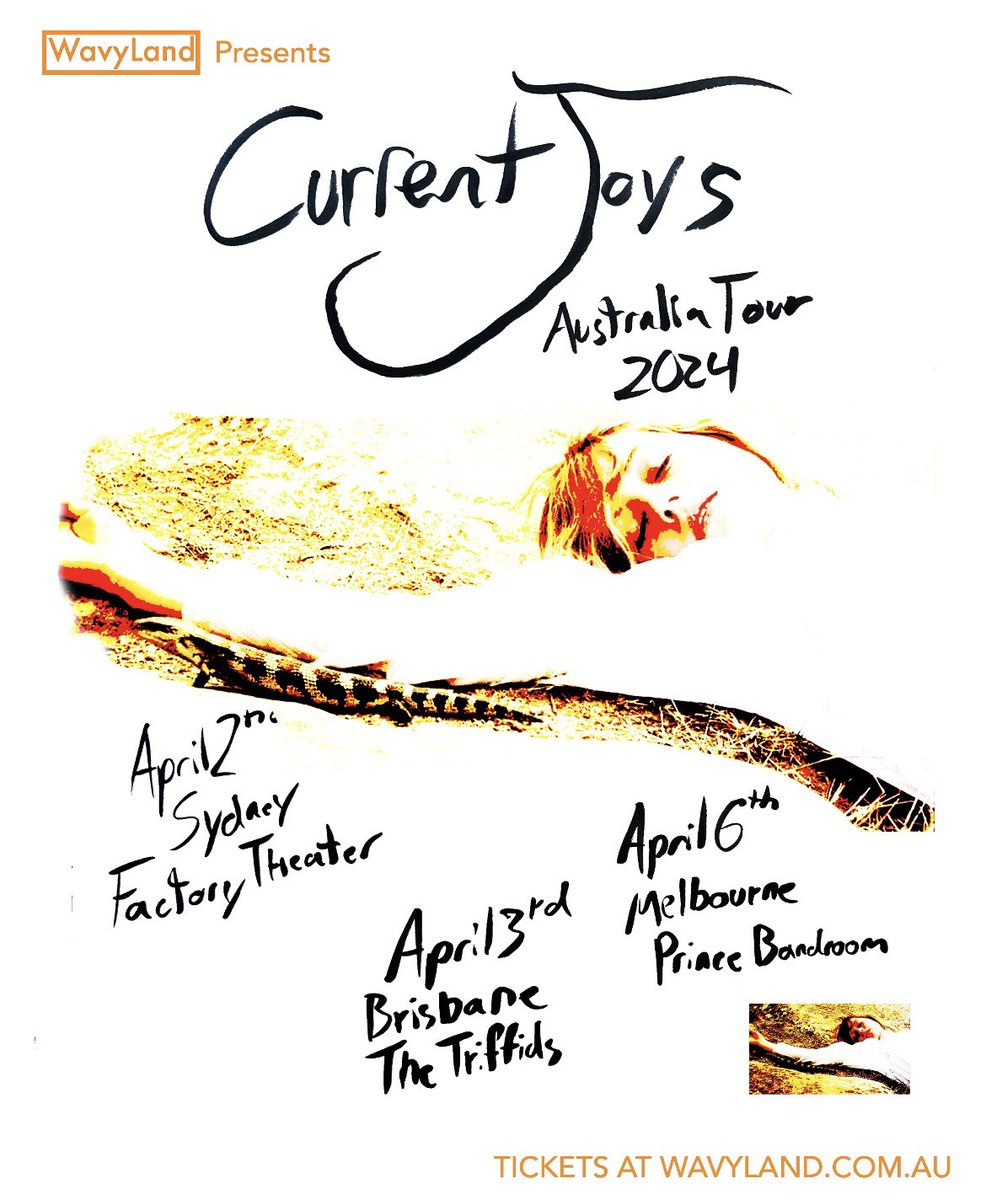 WavyLand Presents
Current Joys
Australia Tour
2024
April 2nd
Sydney
Factory Theater
April 3rd
Brisbane
The Triffids
April 6th
Melbourne
Prince Bandroom
TICKETS AT WAVYLAND.COM.AU